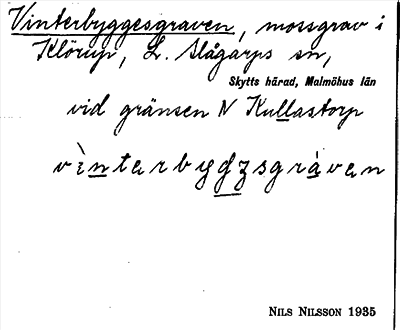 Vinterbyggesgraven, mossgrav i
Klörup, L. Slågarps sn,
Skytts härad, Malmöhus län
vid gränsen N Kullastorp
vìnterbygʒsgràvan
NILS NILSSON 1935